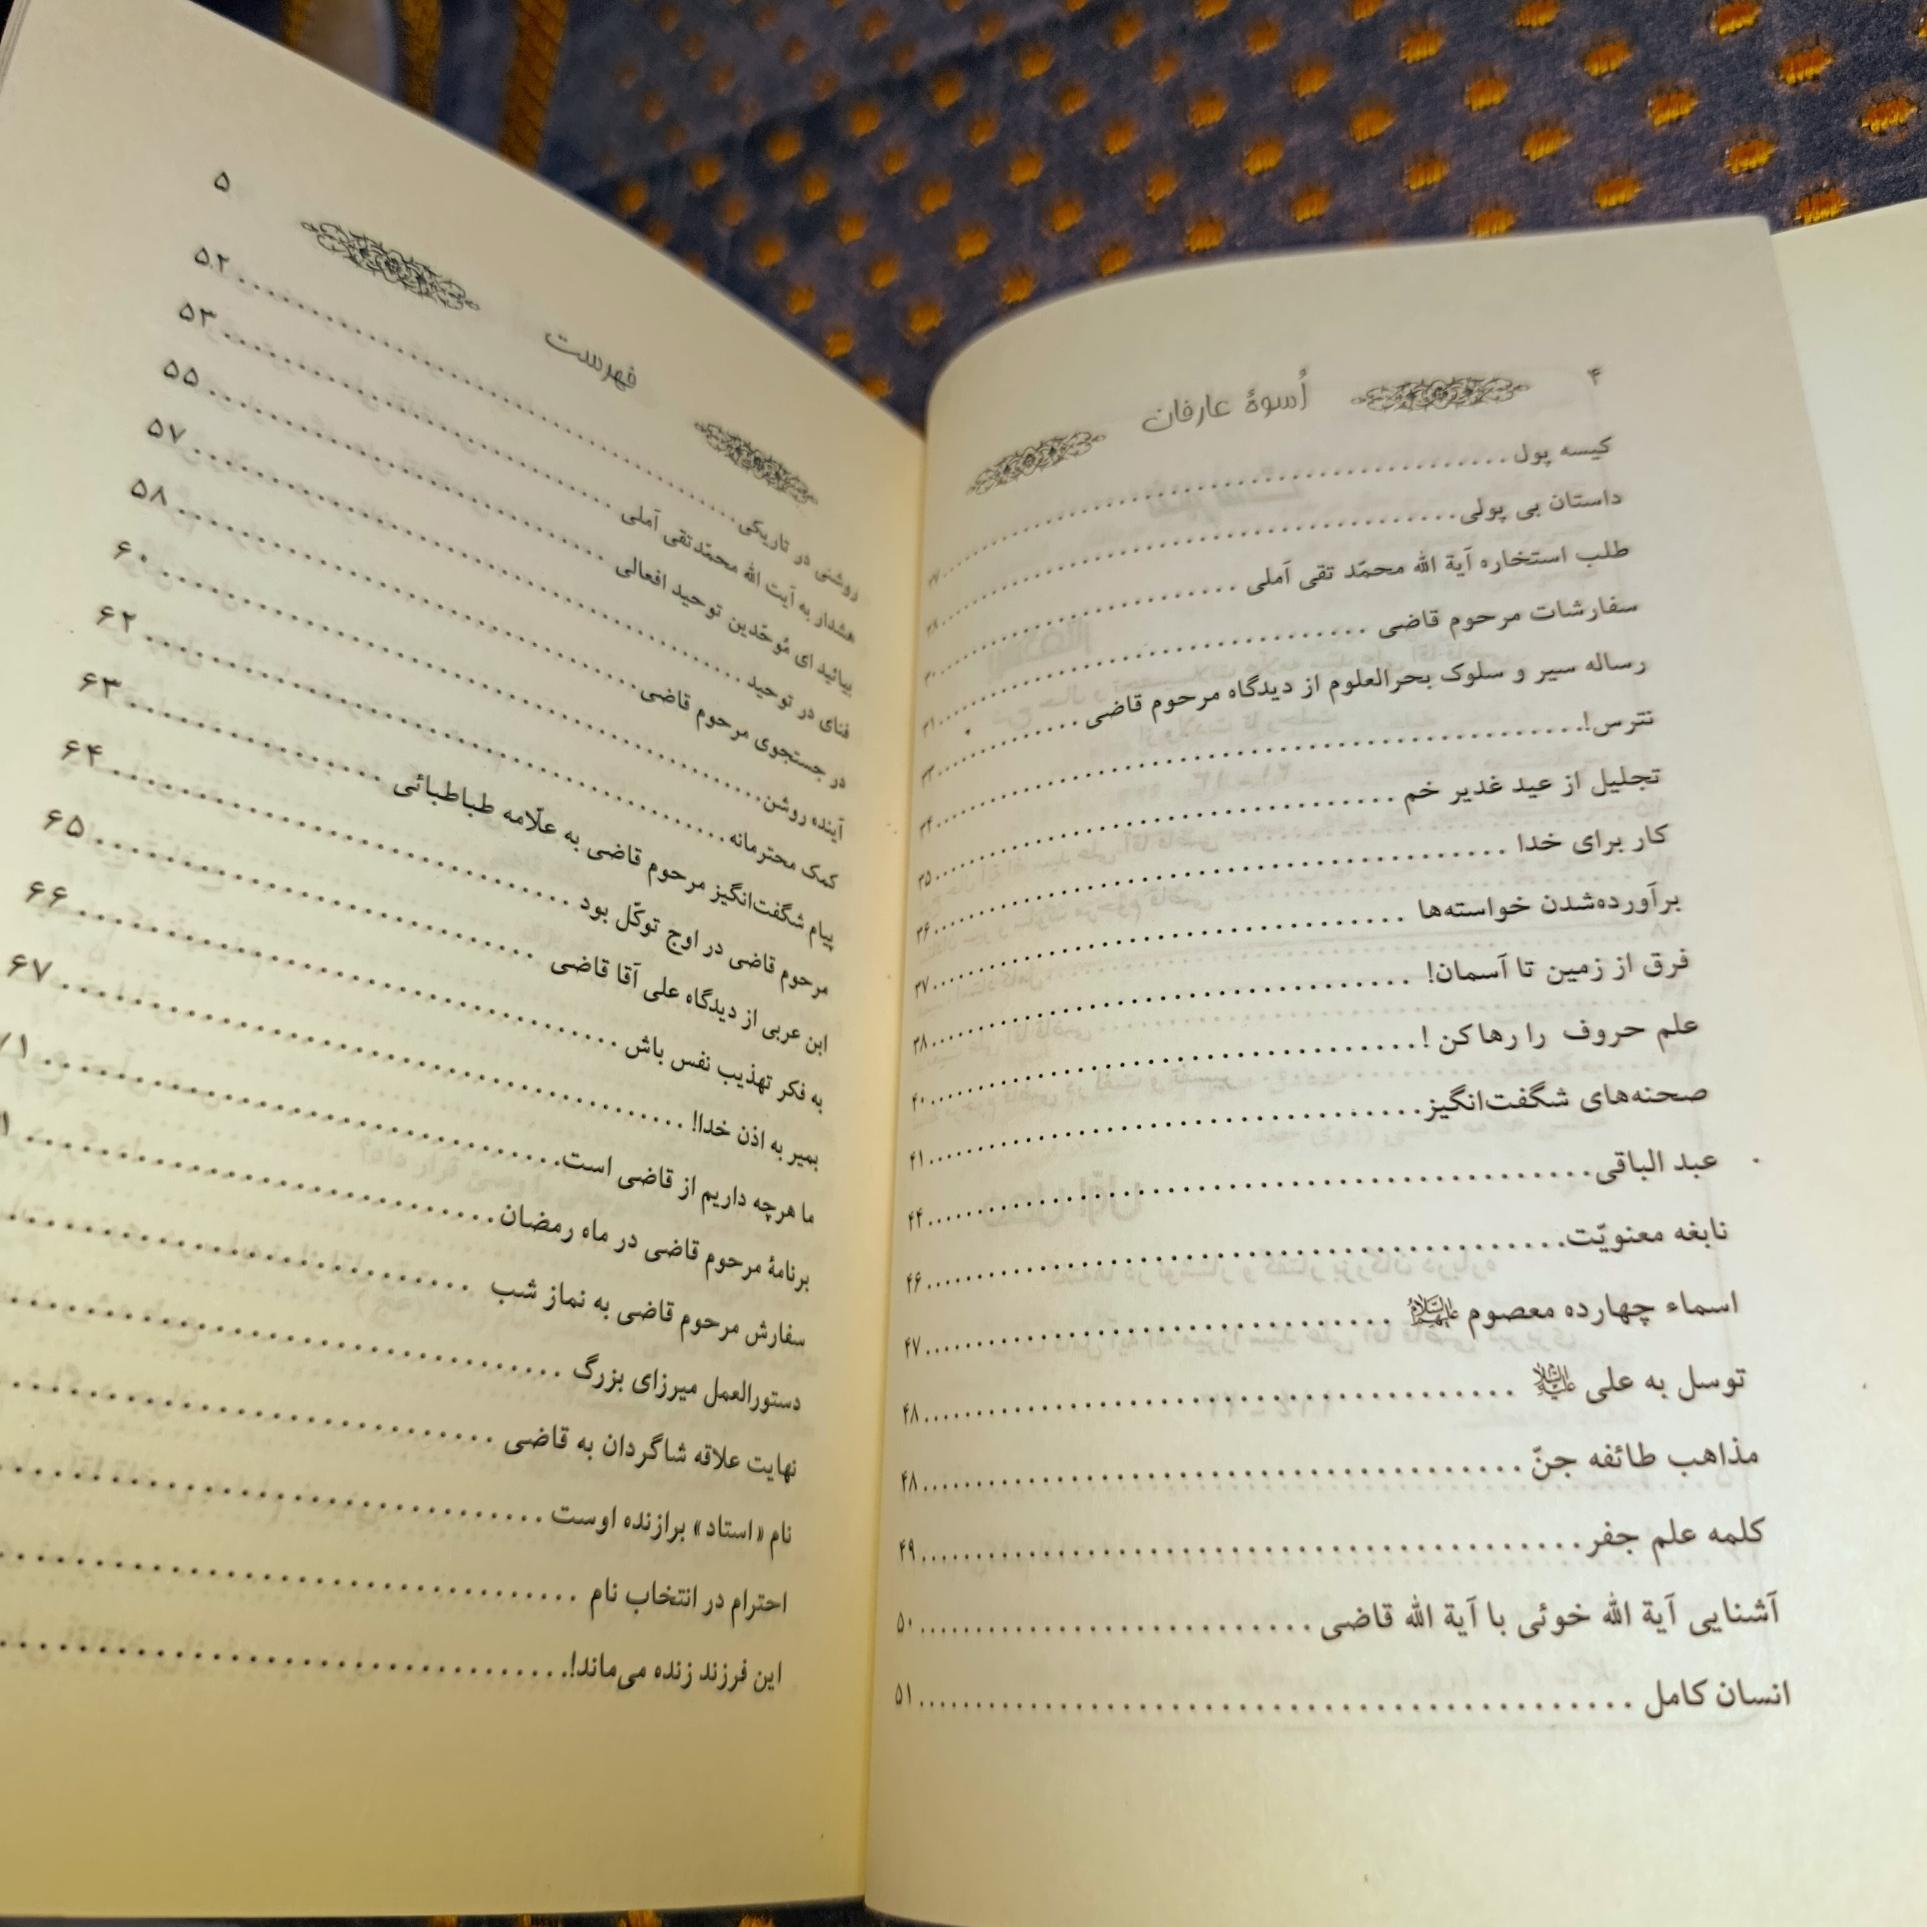 ۴
اُسوهٔ عارفان
کیسه پول ........ ۲۷
داستان بی پولی ........ ۲۸
طلب استخاره آیة الله محمّد تقی آملی ........ ۳۰
سفارشات مرحوم قاضی ........ ۳۱
رساله سیر و سلوک بحرالعلوم از دیدگاه مرحوم قاضی ........ ۳۳
نترس! ........ ۳۴
تجلیل از عید غدیر خم ........ ۳۵
کار برای خدا ........ ۳۶
برآورده‌شدن خواسته‌ها ........ ۳۷
فرق از زمین تا آسمان! ........ ۳۸
علم حروف را رها کن! ........ ۴۰
صحنه‌های شگفت‌انگیز ........ ۴۱
عبد الباقی ........ ۴۴
نابغه معنویّت ........ ۴۶
اسماء چهارده معصوم علیهم السلام ........ ۴۷
توسل به علی علیه السلام ........ ۴۸
مذاهب طائفه جنّ ........ ۴۸
کلمه علم جفر ........ ۴۹
آشنایی آیة الله خوئی با آیة الله قاضی ........ ۵۰
انسان کامل ........ ۵۱
۵
فهرست
روشنی در تاریکی ........ ۵۲
هشدار به آیت الله محمّدتقی آملی ........ ۵۳
بیائید ای مُوحّدین توحید افعالی ........ ۵۵
فنای در توحید ........ ۵۷
در جستجوی مرحوم قاضی ........ ۵۸
آینده روشن ........ ۶۰
کمک محترمانه ........ ۶۲
پیام شگفت‌انگیز مرحوم قاضی به علّامه طباطبائی ........ ۶۳
مرحوم قاضی در اوج توکّل بود ........ ۶۴
ابن عربی از دیدگاه علی آقا قاضی ........ ۶۵
به فکر تهذیب نفس باش ........ ۶۶
بمیر به اذن خدا! ........ ۶۷
ما هرچه داریم از قاضی است ........ ۷۱
برنامهٔ مرحوم قاضی در ماه رمضان ........
سفارش مرحوم قاضی به نماز شب ........
دستورالعمل میرزای بزرگ ........
نهایت علاقه شاگردان به قاضی ........
نام «استاد» برازنده اوست ........
احترام در انتخاب نام ........
این فرزند زنده می‌ماند! ........